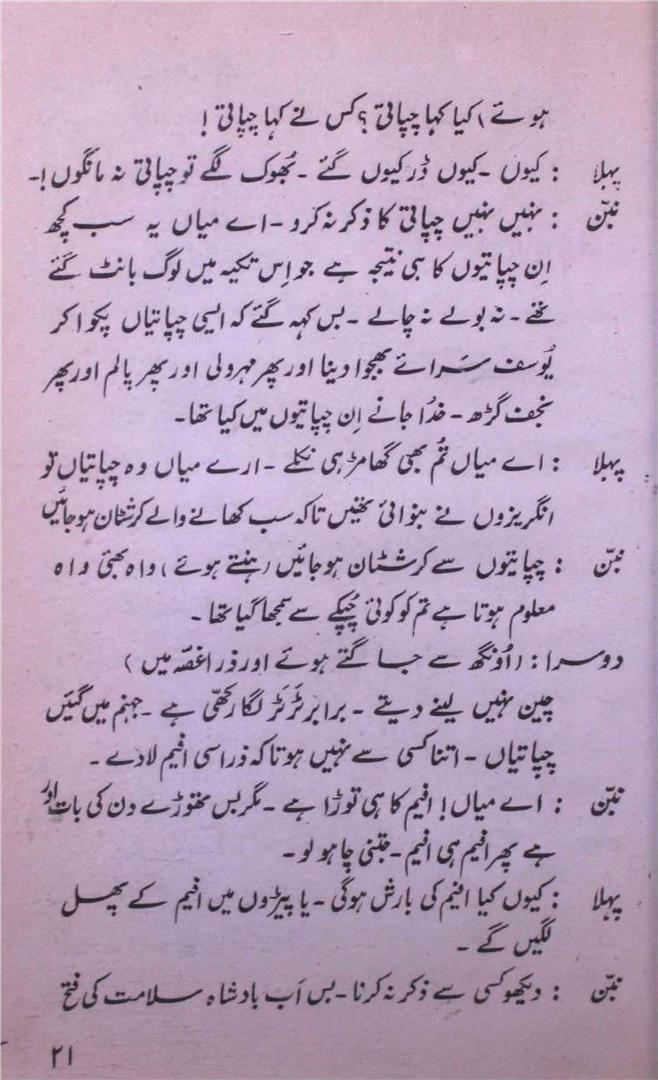 ہوئے) کیا کہا چپاتی؟ کس نے کہا چپاتی!
پہلا : کیوں - کیوں ڈر کیوں گئے - بُھوک لگے تو چپاتی نہ مانگوں!-
نبّن : نہیں نہیں چپاتی کا ذکر نہ کرو - اے میاں یہ سب کچھ
اِن چپاتیوں کا ہی نتیجہ ہے جو اِس تکیہ میں لوگ بانٹ گئے
تھے - نہ بولے نہ چالے - بس کہہ گئے کہ ایسی چپاتیاں پکوا کر
یُوسف سَرائے بھجوا دینا اور پھر مہرولی اور پھر پالم اور پھر
نجف گڑھ - خدُا جانے اِن چپاتیوں میں کیا تھا -
پہلا : اے میاں تُم بھی گھامڑ ہی نکلے - ارے میاں وہ چپاتیاں تو
انگریزوں نے بنوائی تھیں تاکہ سب کھانے والے کرشٹان ہو جائیں
نبّن : چپاتیوں سے کرشٹان ہو جائیں (ہنستے ہوئے) واہ بھئی واہ
معلوم ہوتا ہے تم کو کوئی چُپکے سے سمجھا گیا تھا -
دوسرا : (اُونگھ سے جاگتے ہوئے اور ذرا غصّہ میں)
چین نہیں لینے دیتے - برابر ٹَرٹَر لگا رکھّی ہے - جہنم میں گئیں
چپاتیاں - اتنا کسی سے نہیں ہوتا کہ ذرا سی افیم لا دے -
نبّن : اے میاں! افیم کا ہی توڑا ہے - مگر بس تھوڑے دن کی بات اور
ہے پھر افیم ہی افیم - جتنی چاہو لو -
پہلا : کیوں کیا افیم کی بارش ہوگی - یا پیڑوں میں افیم کے پھل
لگیں گے -
نبّن : دیکھو کسی سے ذکر نہ کرنا - بس اَب بادشاہ سلامت کی فتح
۲۱